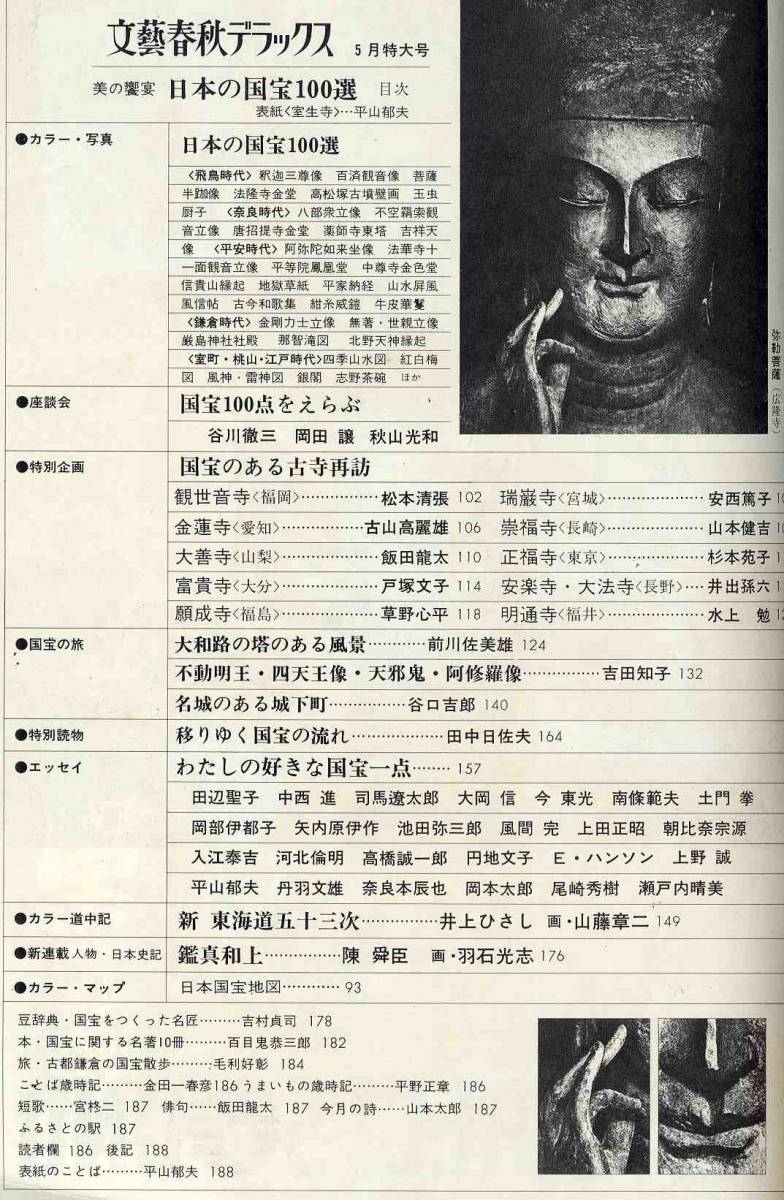 文藝春秋デラックス 5月特大号
美の饗宴 日本の国宝100選 目次
表紙〈室生寺〉…平山郁夫
●カラー・写真
日本の国宝100選
〈飛鳥時代〉釈迦三尊像 百済観音像 菩薩
半跏像 法隆寺金堂 高松塚古墳壁画 玉虫
厨子 〈奈良時代〉八部衆立像 不空羂索観
音立像 唐招提寺金堂 薬師寺東塔 吉祥天
像 〈平安時代〉阿弥陀如来坐像 法華寺十
一面観音立像 平等院鳳凰堂 中尊寺金色堂
信貴山縁起 地獄草紙 平家納経 山水屏風
風信帖 古今和歌集 紺糸威鎧 牛皮華鬘
〈鎌倉時代〉金剛力士立像 無著・世親立像
厳島神社社殿 那智滝図 北野天神縁起
〈室町・桃山・江戸時代〉四季山水図 紅白梅
図 風神・雷神図 銀閣 志野茶碗 ほか
弥勒菩薩（広隆寺）
●座談会
国宝100点をえらぶ
谷川徹三 岡田 譲 秋山光和
●特別企画
国宝のある古寺再訪
観世音寺〈福岡〉……………松本清張 102 瑞巌寺〈宮城〉…………………安西篤子
金蓮寺〈愛知〉……………古山高麗雄 106 崇福寺〈長崎〉…………………山本健吉
大善寺〈山梨〉……………飯田龍太 110 正福寺〈東京〉…………………杉本苑子
富貴寺〈大分〉……………戸塚文子 114 安楽寺・大法寺〈長野〉……井出孫六
願成寺〈福島〉……………草野心平 118 明通寺〈福井〉…………………水上 勉
●国宝の旅
大和路の塔のある風景…………前川佐美雄 124
不動明王・四天王像・天邪鬼・阿修羅像……………吉田知子 132
名城のある城下町……………谷口吉郎 140
●特別読物
移りゆく国宝の流れ………………田中日佐夫 164
●エッセイ
わたしの好きな国宝一点……… 157
田辺聖子 中西 進 司馬遼太郎 大岡 信 今 東光 南條範夫 土門 拳
岡部伊都子 矢内原伊作 池田弥三郎 風間 完 上田正昭 朝比奈宗源
入江泰吉 河北倫明 高橋誠一郎 円地文子 E・ハンソン 上野 誠
平山郁夫 丹羽文雄 奈良本辰也 岡本太郎 尾崎秀樹 瀬戸内晴美
●カラー道中記
新 東海道五十三次……………井上ひさし 画・山藤章二 149
●新連載 人物・日本史記
鑑真和上……………陳 舜臣 画・羽石光志 176
●カラー・マップ
日本国宝地図………… 93
豆辞典・国宝をつくった名匠………吉村貞司 178
本・国宝に関する名著10冊………百目鬼恭三郎 182
旅・古都鎌倉の国宝散歩………毛利好彰 184
ことば歳時記………金田一春彦186 うまいもの歳時記………平野正章 186
短歌……宮柊二 187 俳句……飯田龍太 187 今月の詩……山本太郎 187
ふるさとの駅 187
読者欄 186 後記 188
表紙のことば………平山郁夫 188